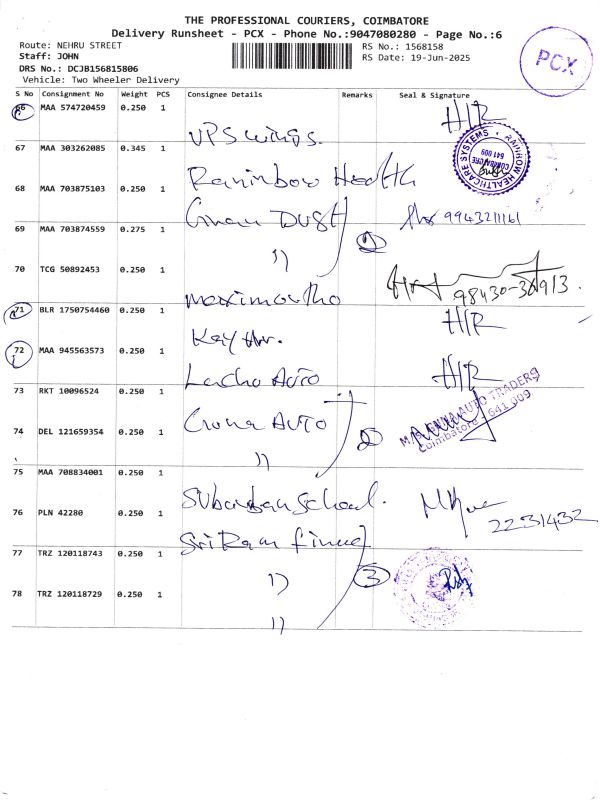 THE PROFESSIONAL COURIERS, COIMBATORE
Delivery Runsheet - PCX - Phone No.:9047080280 - Page No.:6
Route: NEHRU STREET
Staff: JOHN
DRS No.: DCJB156815806
Vehicle: Two Wheeler Delivery
RS No.: 1568158
RS Date: 19-Jun-2025
PCX
S No Consignment No Weight PCS Consignee Details Remarks Seal & Signature
66 MAA 574720459 0.250 1 UPS wings. H/R
67 MAA 303262085 0.345 1 Health RAINBOW HEALTHCARE SYSTEMS COIMBATORE 641 009
68 MAA 703875103 0.250 1 DUST 9943211161
69 MAA 703874559 0.275 1 11 2
70 TCG 50892453 0.250 1 98430-36913
71 BLR 1750754460 0.250 1 H/R
72 MAA 945563573 0.250 1 AUTO H/R
73 RKT 10096524 0.250 1 AUTO AUTO TRADERS
74 DEL 121659354 0.250 1 11 2 Coimbatore - 641 009
75 MAA 708834001 0.250 1 School.
76 PLN 42280 0.250 1 2231432
77 TRZ 120118743 0.250 1 11 3
78 TRZ 120118729 0.250 1 11